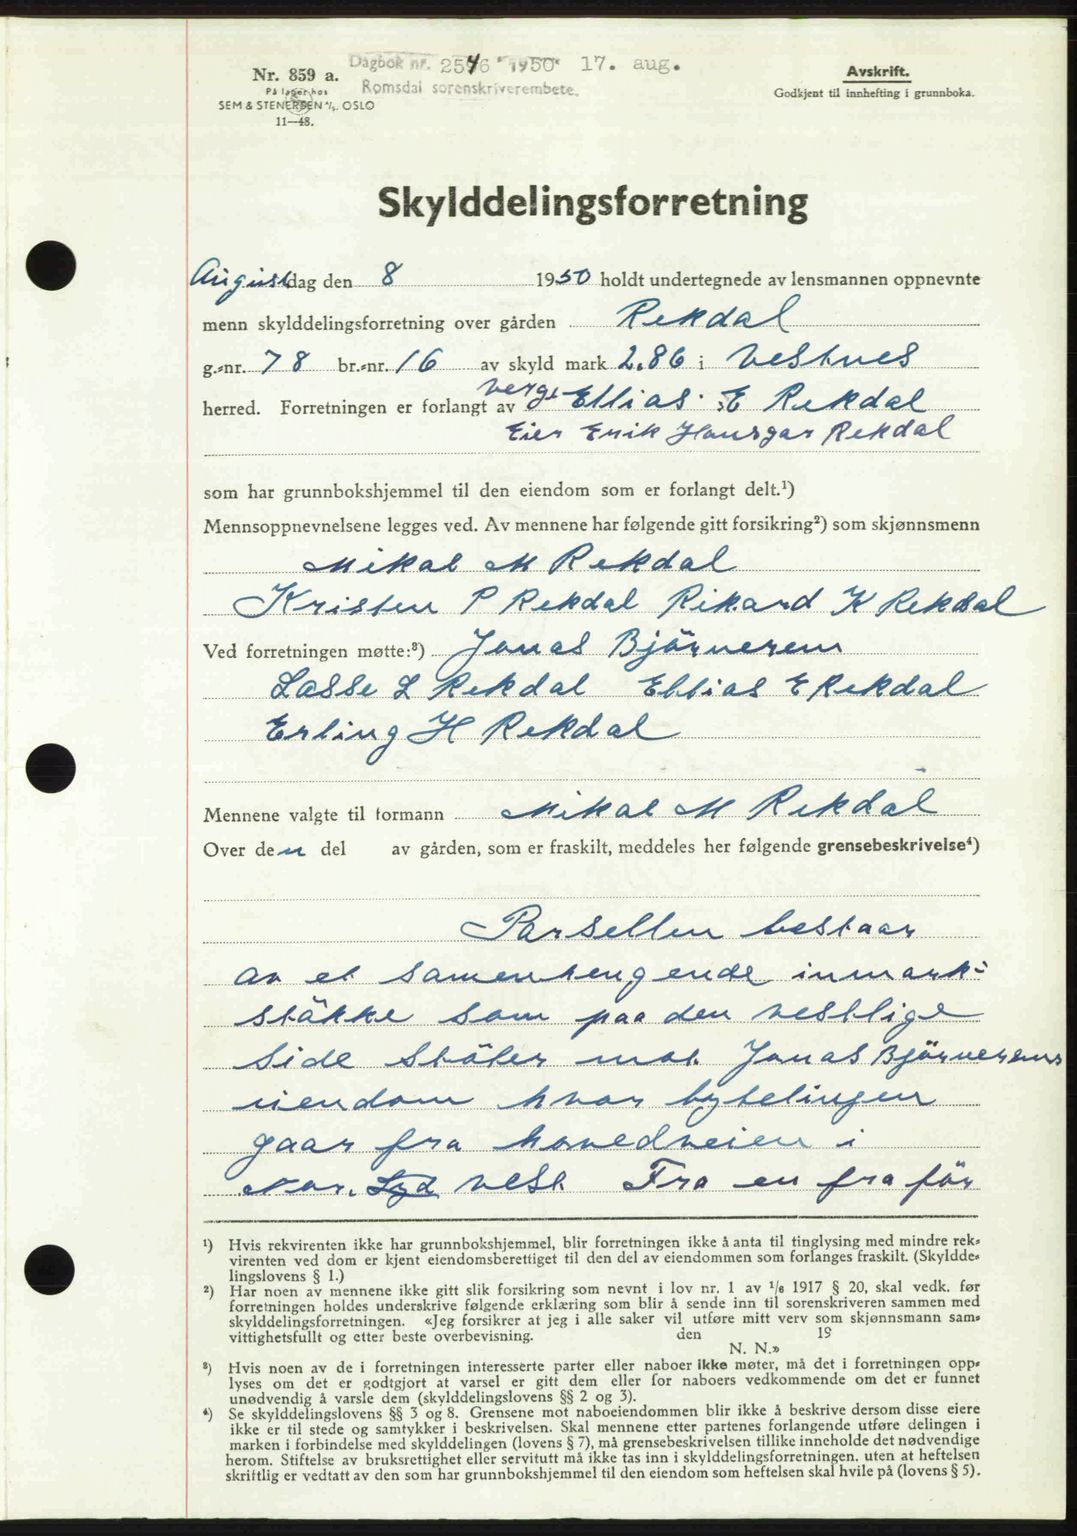 Nr. 859 a.
På lager hos
SEM & STENERSEN A/S. OSLO
11—48.
Dagbok nr. 2546 1950 17. aug.
Romsdal sorenskriverembete.
Avskrift.
Godkjent til innhefting i grunnboka.
Skylddelingsforretning
August dag den 8 1950 holdt undertegnede av lensmannen oppnevnte
menn skylddelingsforretning over gården Rekdal
g.-nr. 78 br.-nr. 16 av skyld mark 2.86 i Vestnes
herred. Forretningen er forlangt av verge Ellias E Rekdal
Eier Erik Hansgar Rekdal
som har grunnbokshjemmel til den eiendom som er forlangt delt.¹)
Mennsoppnevnelsene legges ved. Av mennene har følgende gitt forsikring²) som skjønnsmenn
Mikal M Rekdal
Kristen P Rekdal Rikard K Rekdal
Ved forretningen møtte:³) Jonas Björnerem
Lasse L Rekdal Ellias E Rekdal
Erling H Rekdal
Mennene valgte til formann Mikal M Rekdal
Over den del av gården, som er fraskilt, meddeles her følgende grensebeskrivelse⁴)
Parsellen bestaar
av et samenhengende inmark-
stökke som paa den vestlige
side stöter mot Jonas Björnerems
eiendom hvor bytelingen
gaar fra hovedveien i
Nor. Syd vest. Fra en fra för
¹) Hvis rekvirenten ikke har grunnbokshjemmel, blir forretningen ikke å anta til tinglysing med mindre rek-
virenten ved dom er kjent eiendomsberettiget til den del av eiendommen som forlanges fraskilt. (Skyldde-
lingslovens § 1.)
²) Har noen av mennene ikke gitt slik forsikring som nevnt i lov nr. 1 av 1/6 1917 § 20, skal vedk. før
forretningen holdes underskrive følgende erklæring som blir å sende inn til sorenskriveren sammen med
skylddelingsforretningen. «Jeg forsikrer at jeg i alle saker vil utføre mitt verv som skjønnsmann sam-
vittighetsfullt og etter beste overbevisning. den 19
N. N.»
³) Hvis noen av de i forretningen interesserte parter eller naboer ikke møter, må det i forretningen opp-
lyses om det er godtgjort at varsel er gitt dem eller for naboers vedkommende om det er funnet
unødvendig å varsle dem (skylddelingslovens §§ 2 og 3).
⁴) Se skylddelingslovens §§ 3 og 8. Grensene mot naboeiendommen blir ikke å beskrive dersom disse eiere
ikke er til stede og samtykker i beskrivelsen. Skal mennene etter partenes forlangende utføre delingen i
marken i forbindelse med skylddelingen (lovens § 7), må grensebeskrivelsen tillike inneholde det nødvendige
herom. Stiftelse av bruksrettighet eller servitutt må ikke tas inn i skylddelingsforretningen. uten at heftelsen
skriftlig er vedtatt av den som har grunnbokshjemmel til den eiendom som heftelsen skal hvile på (lovens § 5).